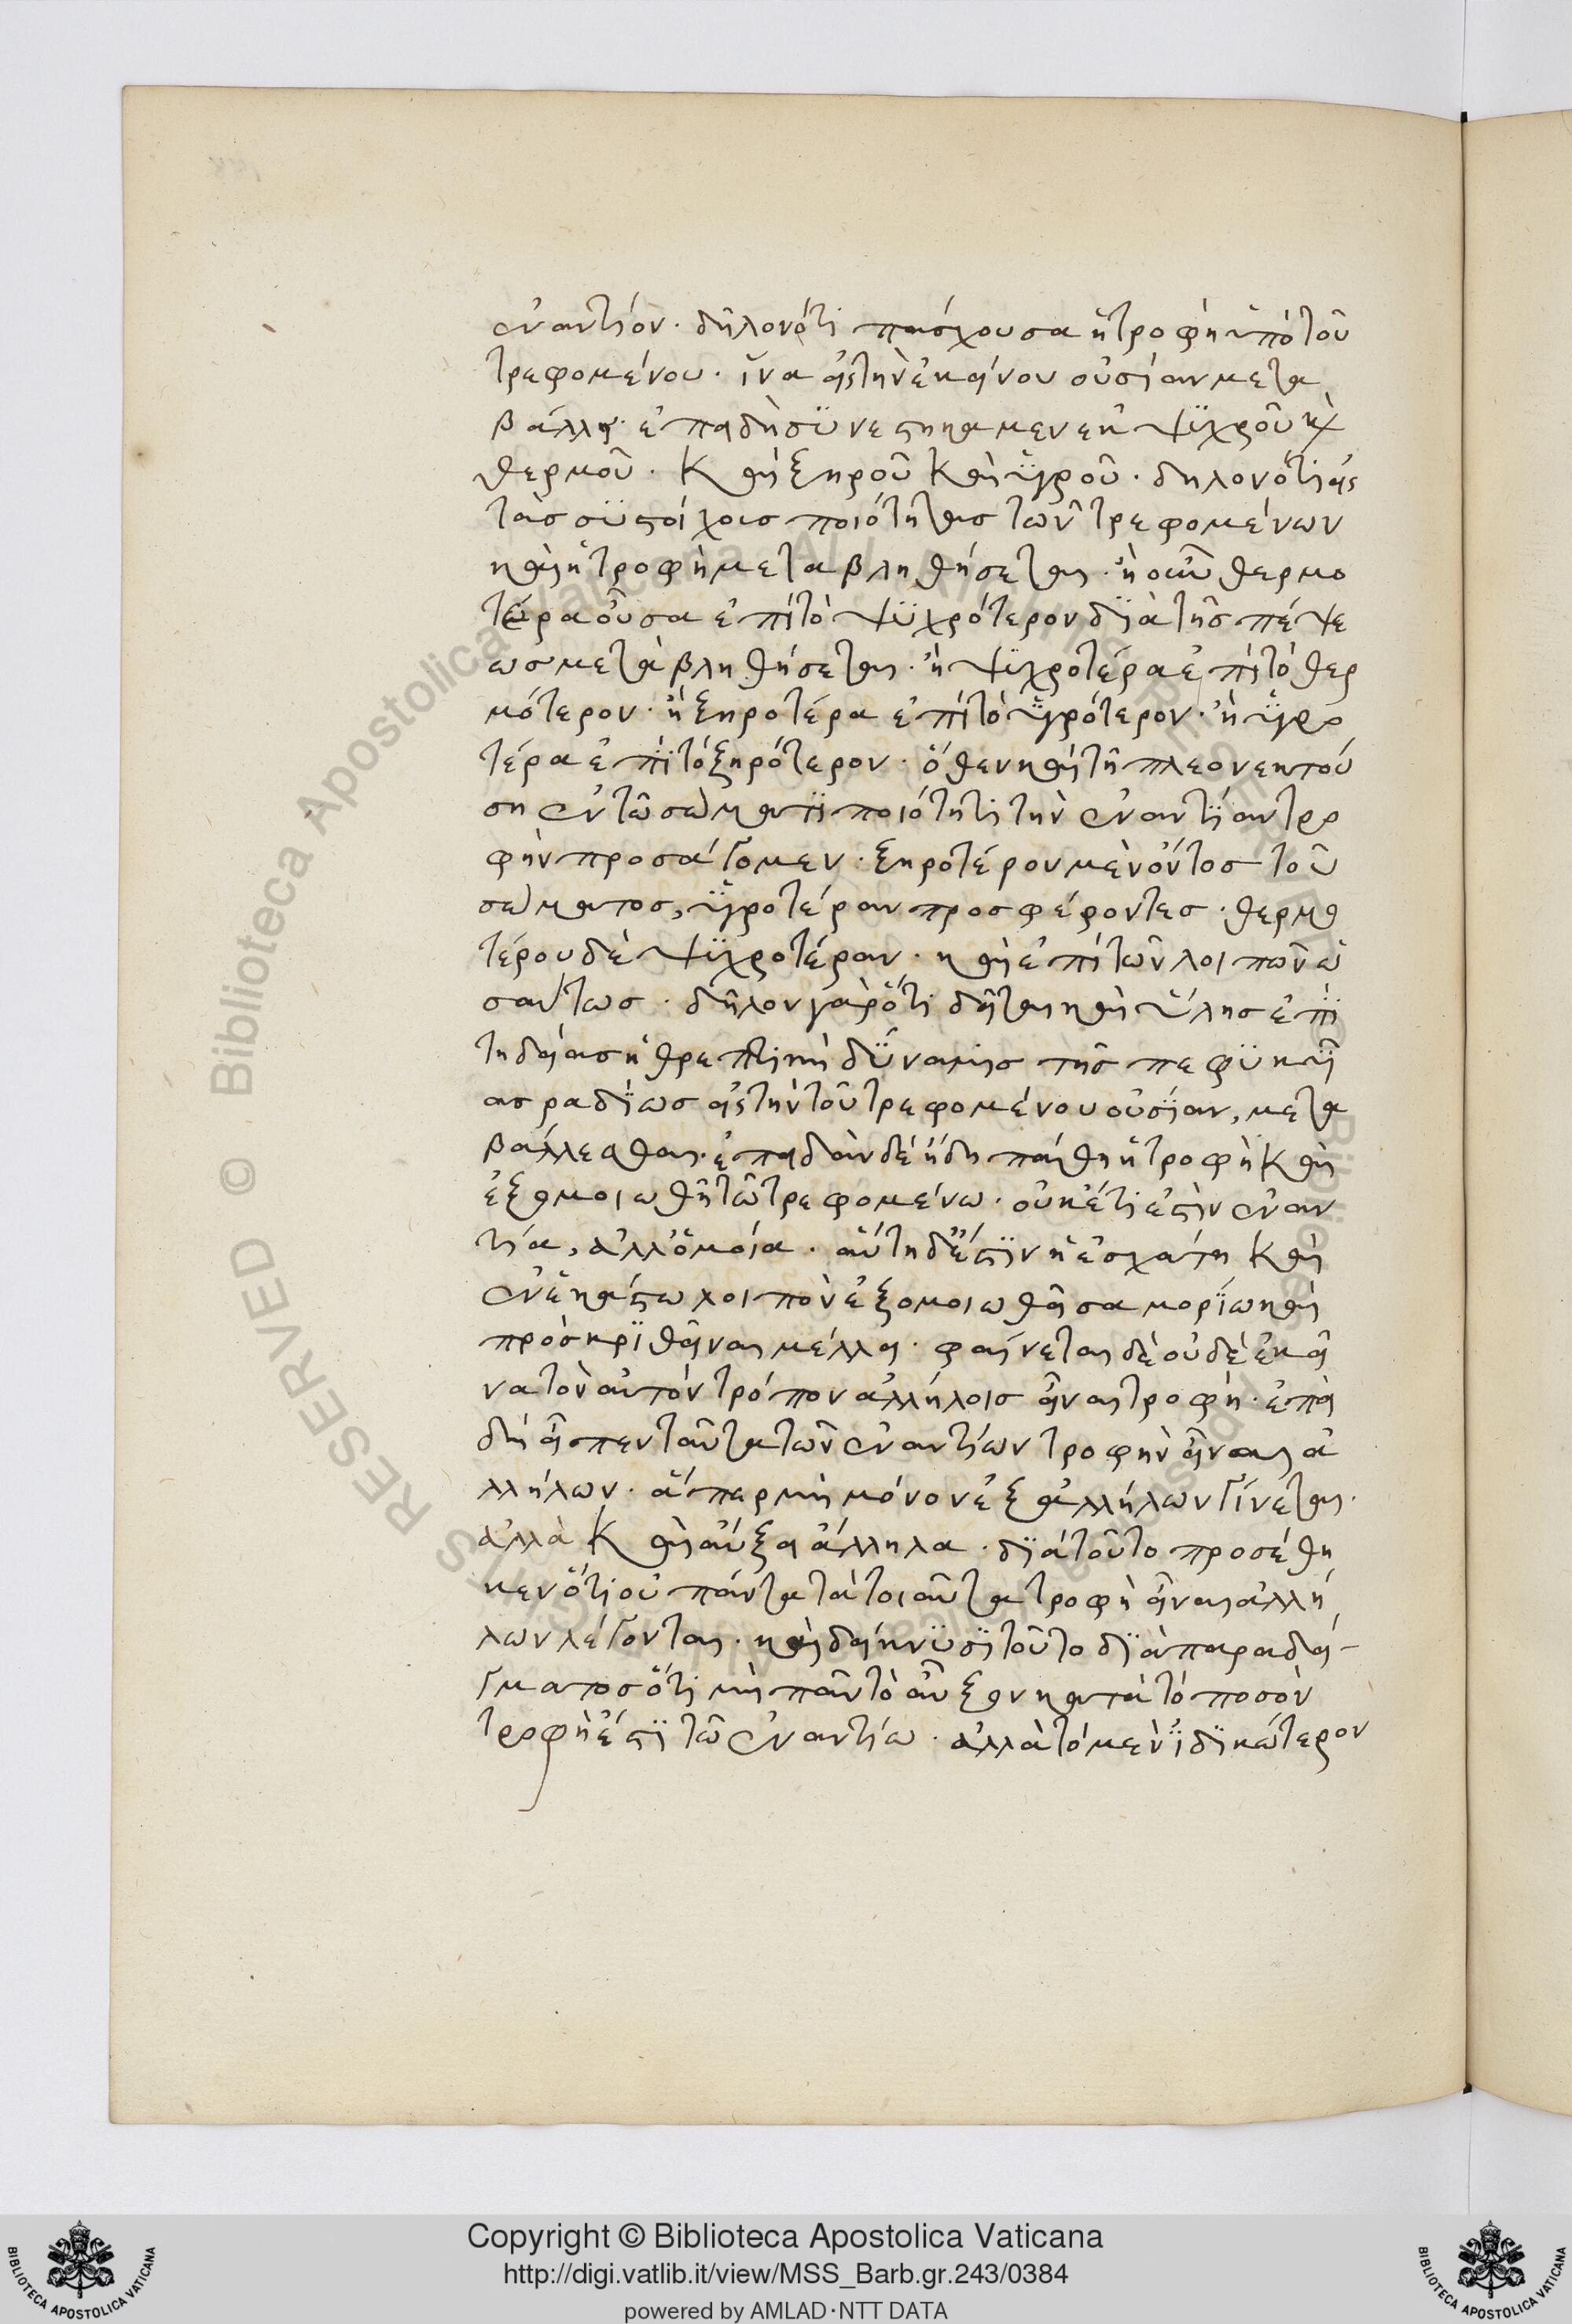 ἐναντίον· δῆλον ὅτι πάσχουσα ἡ τροφὴ ὑπὸ τοῦ
τρεφομένου· ἵνα εἰς τὴν ἐκείνου οὐσίαν μετα
βάλλῃ· ἐπειδὴ συνεστήκαμεν ἐκ ψυχροῦ καὶ
θερμοῦ· καὶ ξηροῦ καὶ ὑγροῦ· δηλονότι εἰς
τὰς συστοίχοις ποιότητας τῶν τρεφομένων
καὶ ἡ τροφὴ μεταβληθήσεται· ἢ οὖν θερμο
τέρα οὖσα ἐπὶ τὸ ψυχρότερον διὰ τῆς πέψε
ως μεταβληθήσεται· ἢ ψυχροτέρα ἐπὶ τὸ θερ
μότερον· ἢ ξηροτέρα ἐπὶ τὸ ὑγρότερον· ἢ ὑγρο
τέρα ἐπὶ τὸ ξηρότερον· ὅθεν καὶ τῇ πλεονεκτού
σῃ ἐν τῶ σώματι ποιότητι τὴν ἐναντίαν τρο
φὴν προσάγομεν· ξηροτέρου μὲν ὄντος τοῦ
σώματος, ὑγροτέραν προσφέροντες· θερμο
τέρου δὲ ψυχροτέραν· καὶ ἐπὶ τῶν λοιπῶν ὡ
σαύτως· δῆλον γὰρ ὅτι δεῖται καὶ ὕλης ἐπι
τηδείας ἡ θρεπτικὴ δύναμις τῆς πεφυκυί
ας ραδίως εἰς τὴν τοῦ τρεφομένου οὐσίαν, μετα
βάλλεσθαι· ἐπειδὰν δὲ ἤδη πάθῃ ἡ τροφὴ καὶ
ἐξομοιωθῇ τῶ τρεφομένω· οὐκέτι ἐστὶν ἐναν
τία, ἀλλ' ὁμοία· αὕτη δέ ἐστιν ἡ ἐσχάτη καὶ
ἐν ἑκάστω λοιπὸν ἐξομοιωθεῖσα μορίω καὶ
προσκριθῆναι μέλλει· φαίνεται δὲ οὐδὲ ἐκεῖ
να τὸν αὐτὸν τρόπον ἀλλήλοις εἶναι τροφή· ἐπει
δὴ εἶπεν ταῦτα τῶν ἐναντίων τροφὴν εἶναι ἀ
λλήλων· ἅπερ μὴ μόνον ἐξ ἀλλήλων γίνεται·
ἀλλὰ καὶ αὔξει ἄλληλα· διὰ τοῦτο προσέθη
κεν ὅτι οὐ πάντα τὰ τοιαῦτα τροφὴ εἶναι ἀλλή
λων λέγονται· καὶ δείκνυσι τοῦτο διὰ παραδεί-
γματος ὅτι μὴ πᾶν τὸ αὖξον κατὰ τὸ ποσὸν
τροφή ἐστι τῶ ἐναντίω· ἀλλὰ τὸ μὲν ἰδικώτερον
Copyright © Biblioteca Apostolica Vaticana
http://digi.vatlib.it/view/MSS_Barb.gr.243/0384
powered by AMLAD·NTT DATA